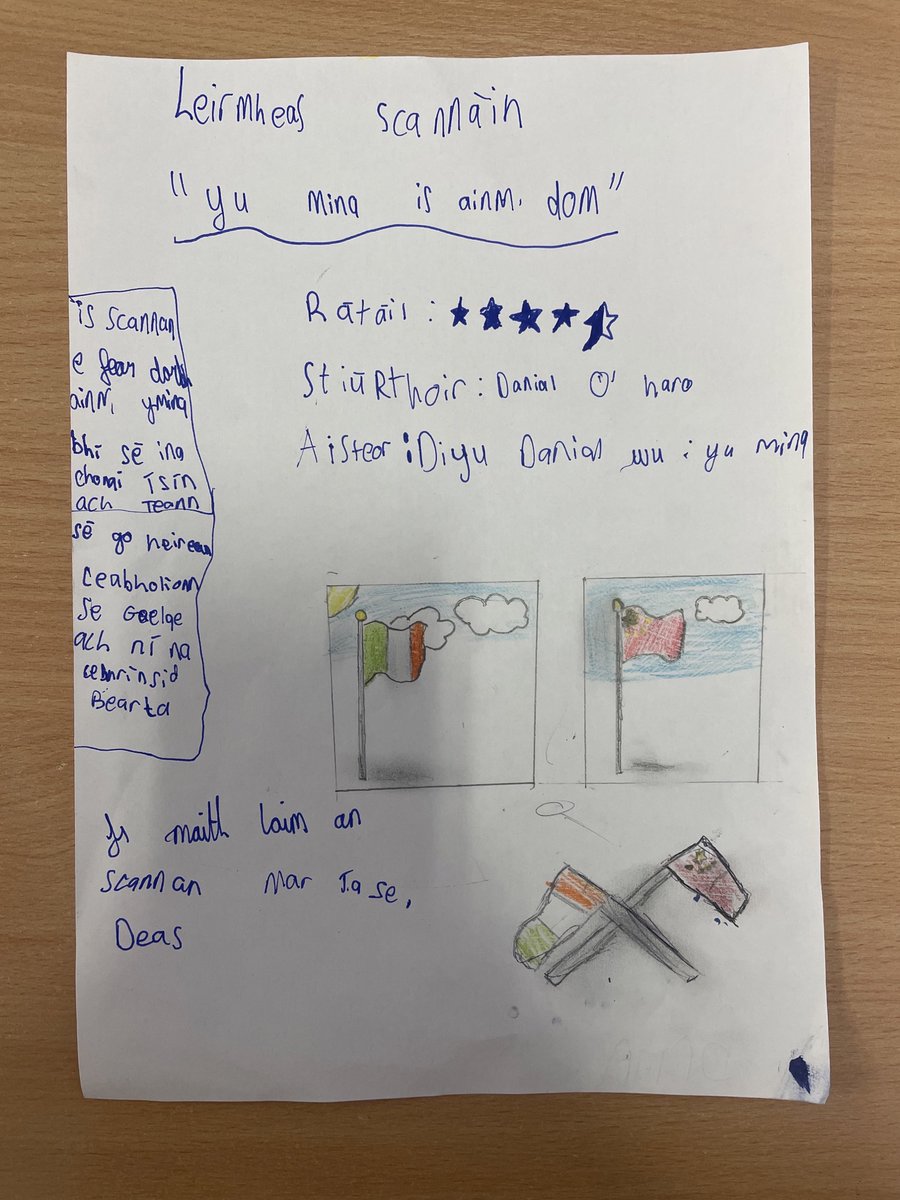 Leirmheas scannàin
"yu ming is ainm, dom"
Rātāil : ★★★★
Stiūrthoir : Danial O' hara
Aisteor : Diyu Danial wu : yu ming
is scannan
e fear darbh
ainm, yming
bhī sē ina
chonai īsīn
ach Teann
sē go heireann
se Gaelge
ach nī na
Bearla
Is maith laim an
scannan mar Ta se,
Deas